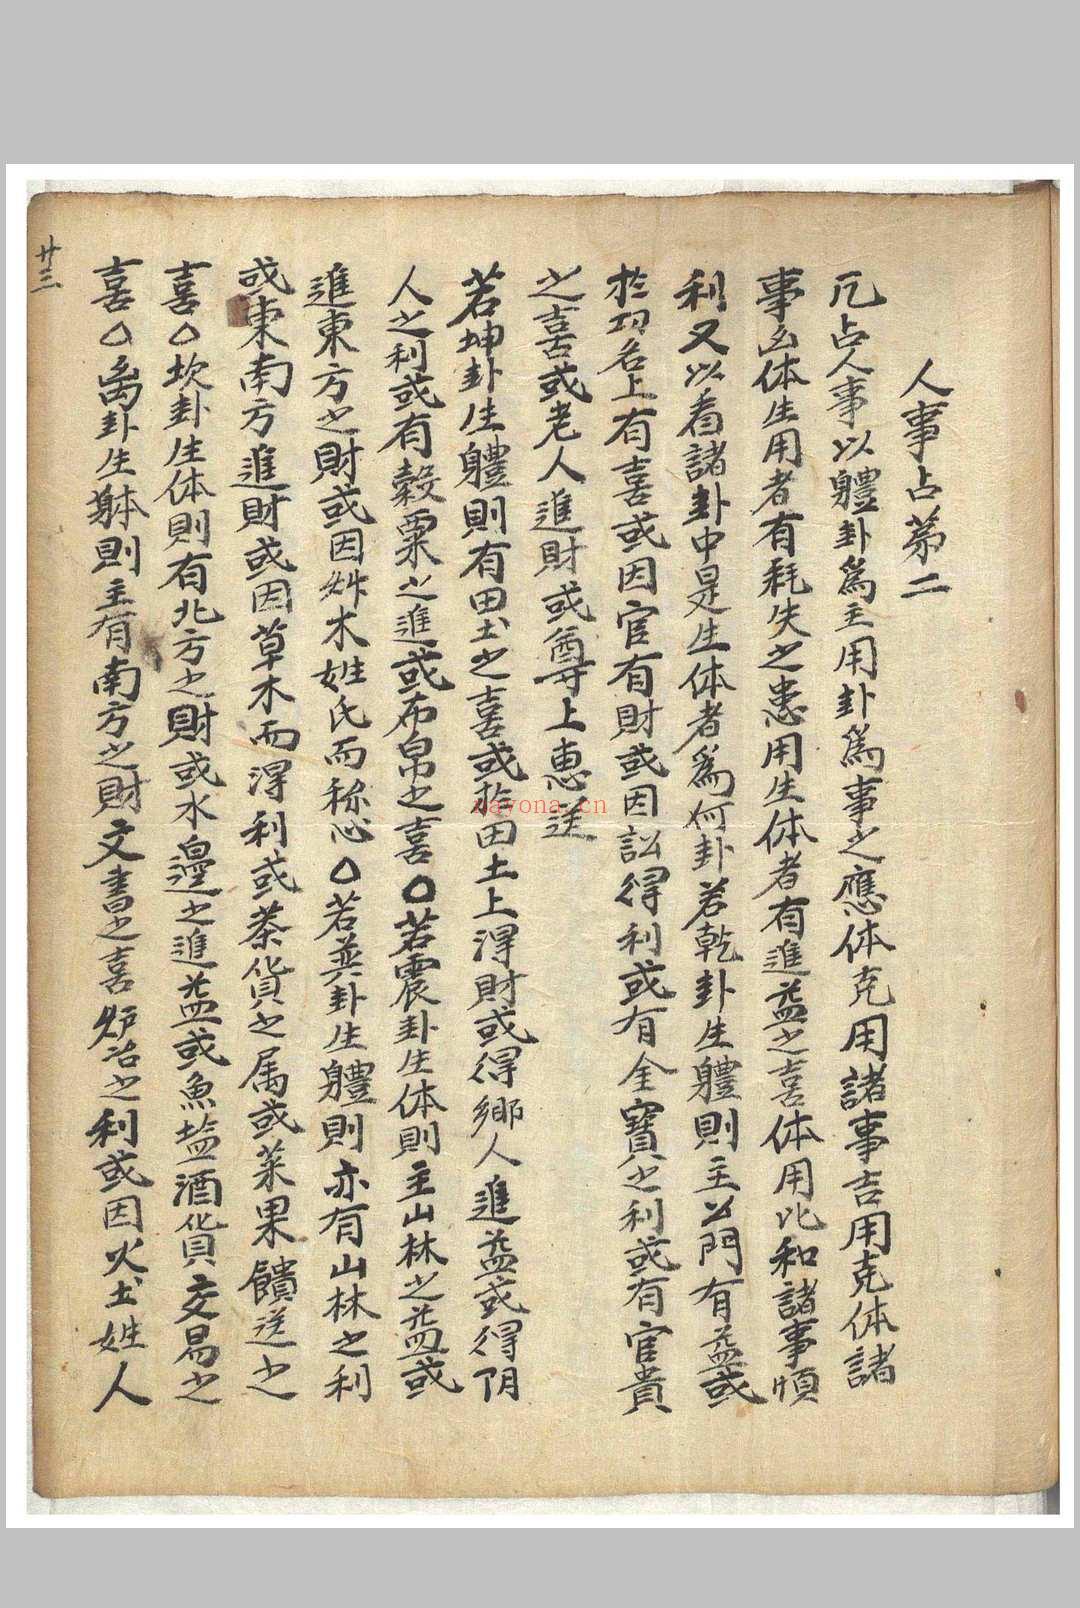 人事占第二
凡占人事以軆卦爲主用卦爲事之應体克用諸事吉用克体諸
事凶体生用者有耗失之患用生体者有進益之喜体用比和諸事順
利又以看諸卦中是生体者爲何卦若乾卦生軆則主公門有益或
於功名上有喜或因官有財或因訟得利或有金寶之利或有官貴
之喜或老人進財或尊上惠送
若坤卦生軆則有田土之喜或於田土上得財或得鄉人進益或得阴
人之利或有穀粟之進或布帛之喜○若震卦生体則主山林之益或
進東方之財或因 木姓氏而称心○若巽卦生軆則亦有山林之利
或東南方進財或因草木而得利或茶貨之属或菜果饋送之
喜○坎卦生体則有北方之財或水邊之進益或魚塩酒貨交易之
喜○离卦生躰則主有南方之財文書之喜炉冶之利或因火土姓人
廿三
nayona.cn